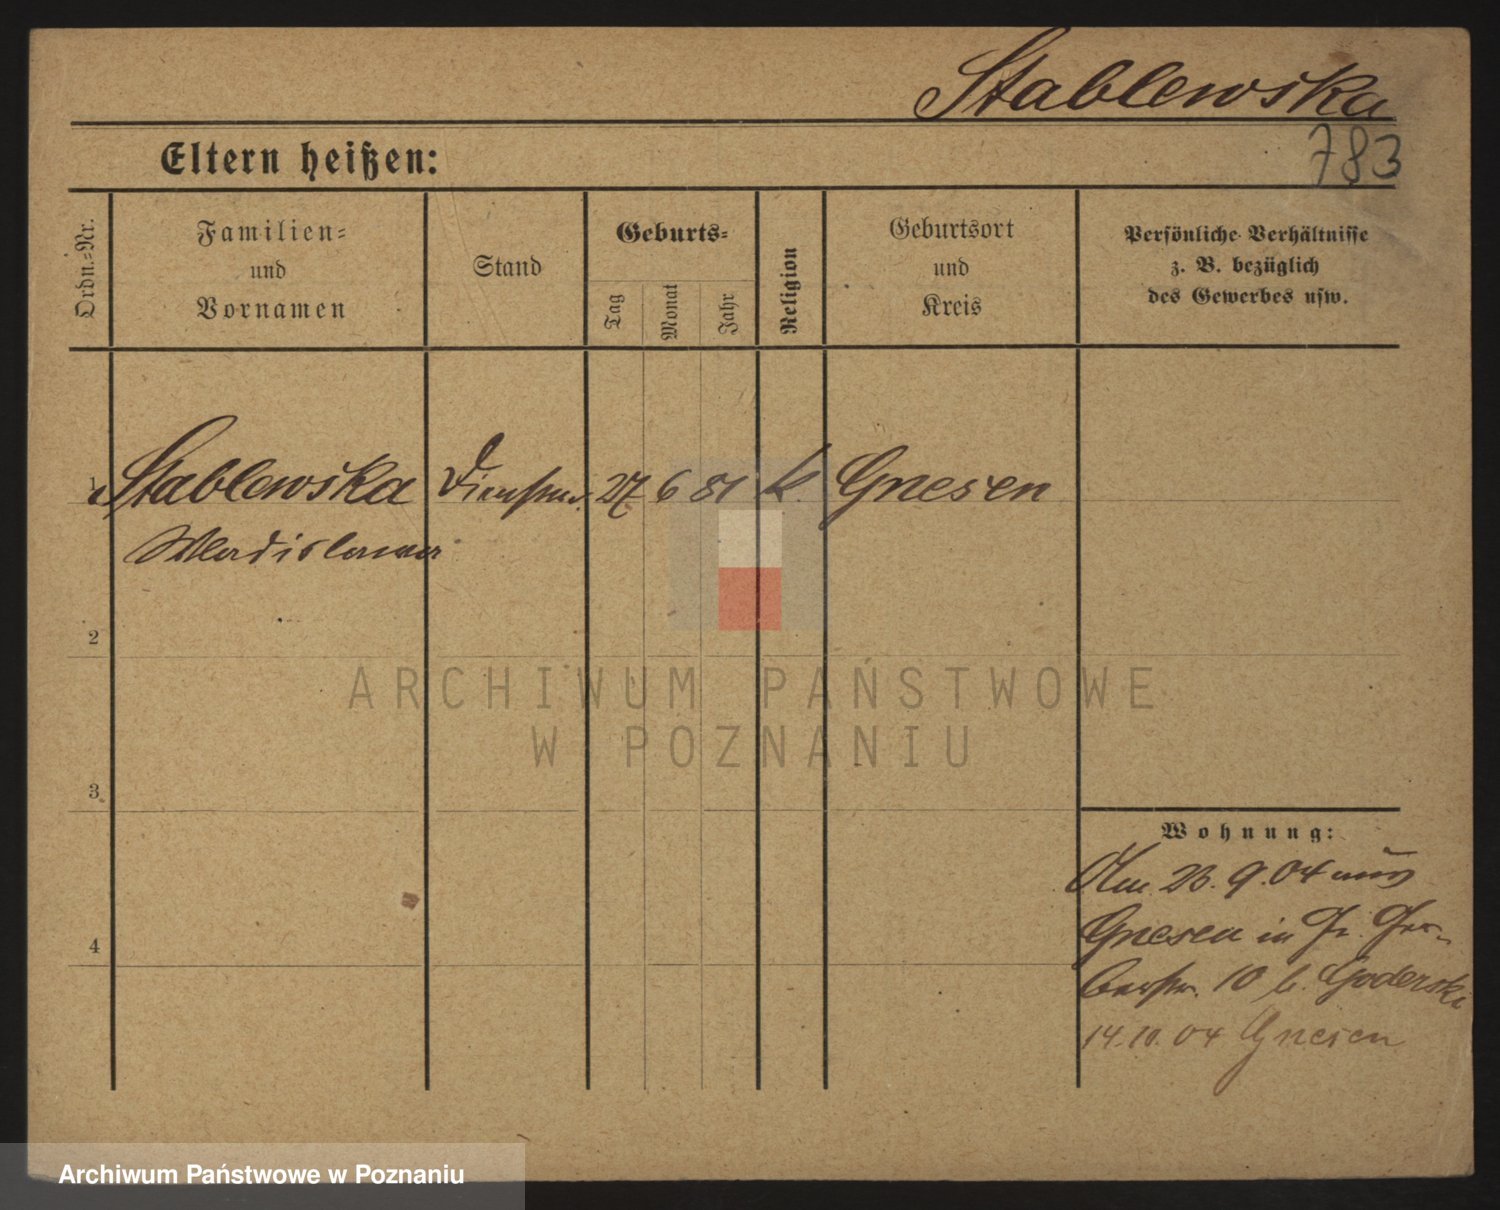 Stablewska
783
Eltern heißen:
Ordn.-Nr.
Familien-
und
Vornamen
Stand
Geburts-
Tag
Monat
Jahr
Religion
Geburtsort
und
Kreis
Persönliche Verhältnisse
z. B. bezüglich
des Gewerbes usw.
1 Stablewska 27 6 81 k. Gnesen
Wladislawa
2
3
4
Wohnung:
Am 23. 9. 04 aus
Gnesen in Ger-
berstr. 10 b. Goderski
14.10.04 Gnesen
ARCHIWUM PAŃSTWOWE
W POZNANIU
Archiwum Państwowe w Poznaniu